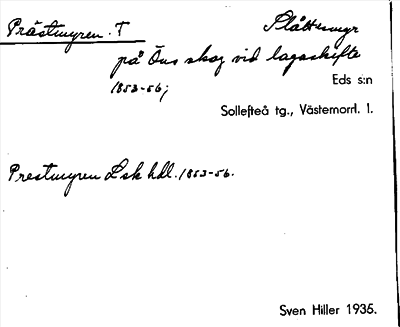 Prästmyren. T
Slåttmyr
på Öns skog vid lagaskifte
1853-56;
Eds s:n
Sollefteå tg., Västernorrl. l.
Prestmyren Lsk hdl. 1853-56.
Sven Hiller 1935.